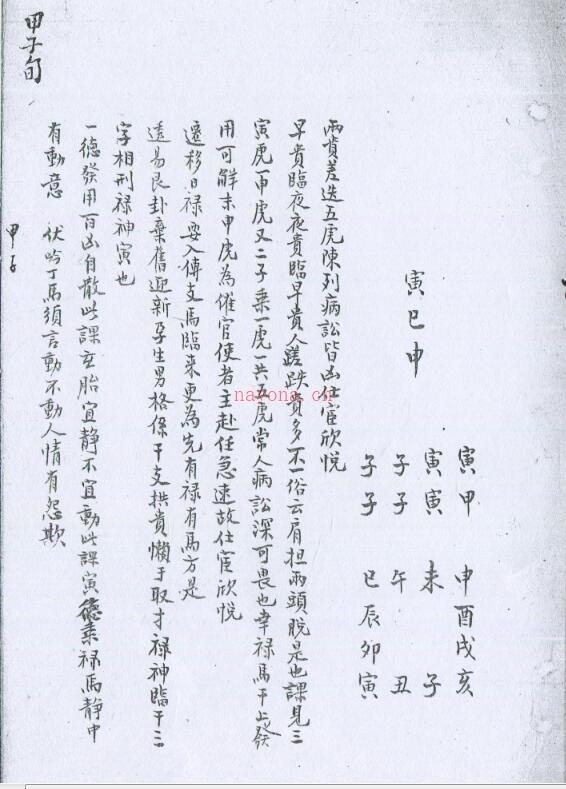 寅巳申
寅甲 申酉戌亥
寅寅 未 子
子子 午 丑
子子 巳辰卯寅
兩貴差迭五虎陳列病訟皆凶仕宦欣悅
早貴臨夜夜貴臨早貴人蹉跌貴多不一俗云肩担兩頭脫是也課見三
寅虎一申虎又二子乘一虎一共五虎常人病訟深可畏也幸禄馬干上發
用可解末申虎為催官使者主赴任急速故仕宦欣悅
遷移日禄要入傳支馬臨来更為先有禄有馬方是
迍易艮卦棄舊迎新孕生男格係干支拱貴懶于取才禄神臨干三
字相刑禄神寅也
一德發用百凶自散此課玄胎宜静不宜動此課寅德乘禄馬静中
有動意 伏吟丁馬須言動不動人情有怨欺
甲子
甲子旬
nayona.cn